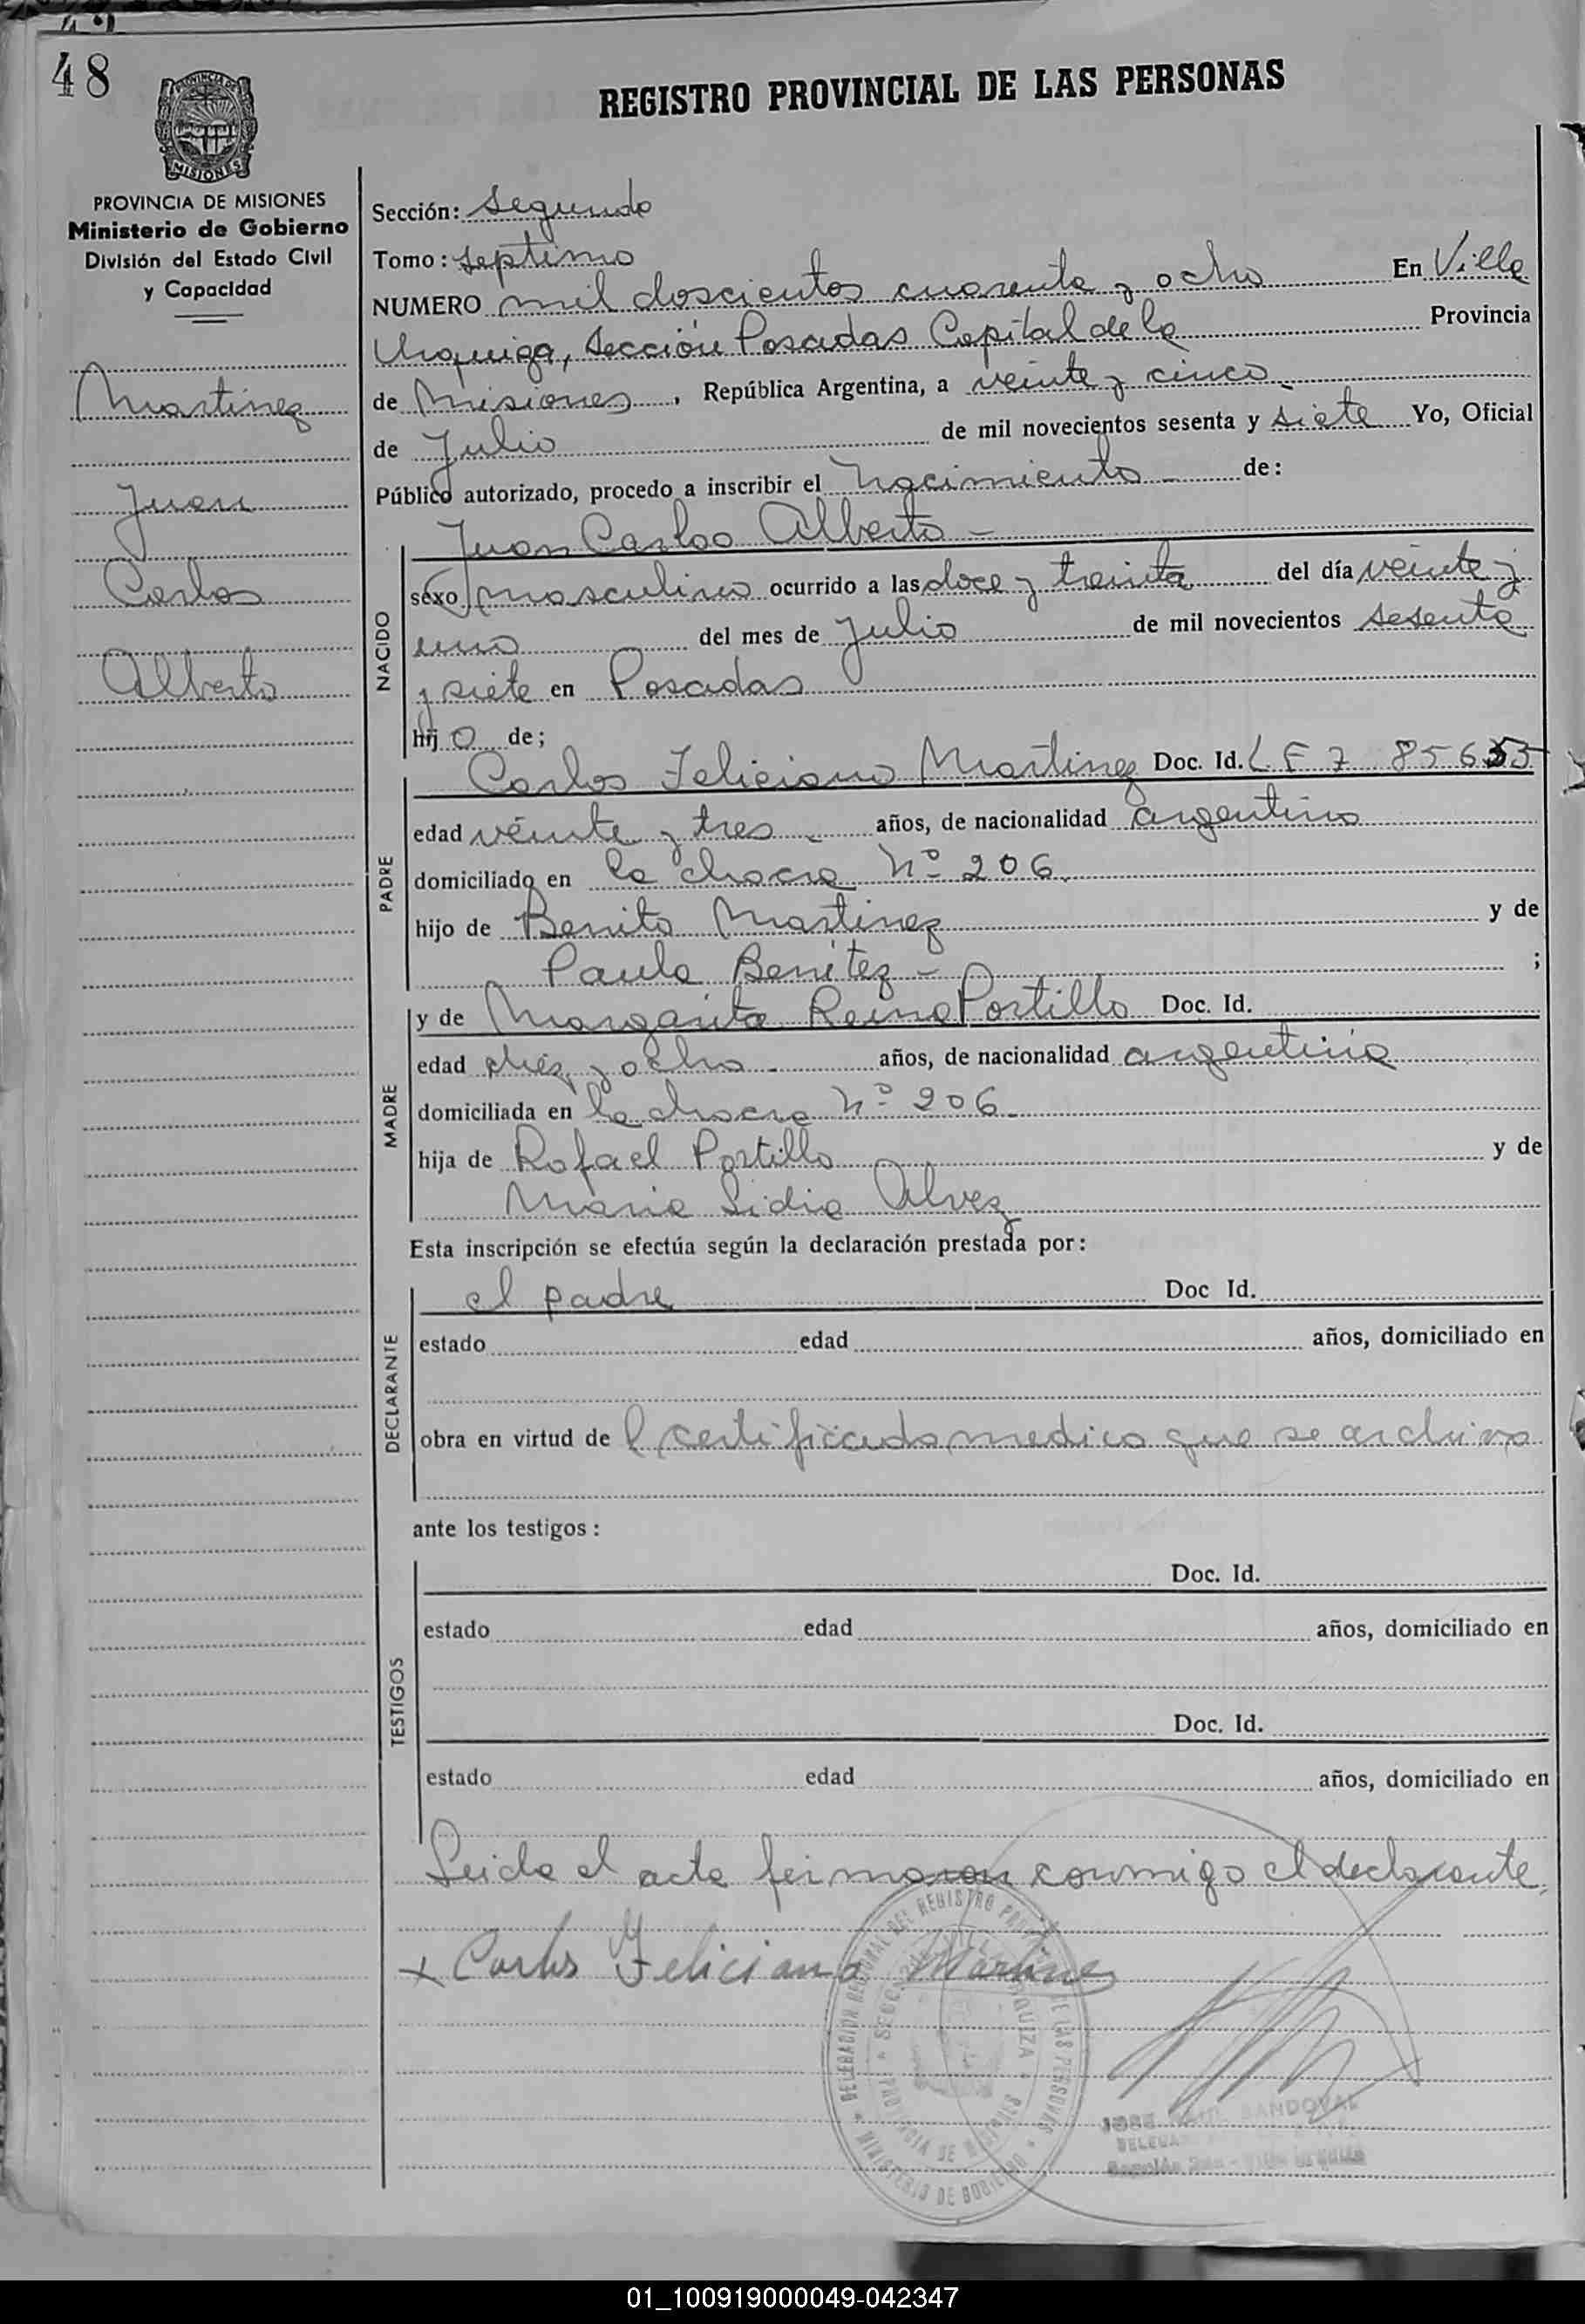 48
REGISTRO PROVINCIAL DE LAS PERSONAS
MISIONES
PROVINCIA DE MISIONES
Ministerio de Gobierno
División del Estado Civil
y Capacidad
Martinez
Juan
Carlos
Alberto
Sección: Segunda
Tomo: septimo
NUMERO mil doscientos cuarenta y ocho En Villa
Urquiza, Sección Posadas Capital de la Provincia
de Misiones, República Argentina, a veinte y cinco
de Julio de mil novecientos sesenta y siete Yo, Oficial
Público autorizado, procedo a inscribir el Nacimiento de:
NACIDO
Juan Carlos Alberto
sexo masculino ocurrido a las doce y treinta del día veinte y
uno del mes de Julio de mil novecientos sesenta
y siete en Posadas
hijo de;
PADRE
Carlos Feliciano Martinez Doc. Id. L E 7
edad veinte y tres años, de nacionalidad argentino
domiciliado en la chacra Nº 206
hijo de Benito Martinez y de
Paula Benitez ;
MADRE
y de Margarita Reina Portillo Doc. Id.
edad diez y ocho años, de nacionalidad argentina
domiciliada en la chacra Nº 206
hija de Rafael Portillo y de
Maria Lidia Alvez
Esta inscripción se efectúa según la declaración prestada por:
DECLARANTE
el padre Doc Id.
estado edad años, domiciliado en
obra en virtud del certificado medico que se archiva
ante los testigos:
TESTIGOS
Doc. Id.
estado edad años, domiciliado en
Doc. Id.
estado edad años, domiciliado en
Leida el acta firmaron conmigo el declarante
x Carlos Feliciano Martinez
DELEGACION REGIONAL DEL REGISTRO PROVINCIAL DE LAS PERSONAS
MINISTERIO DE GOBIERNO
PROVINCIA DE MISIONES
SANDOVAL
01_100919000049-042347